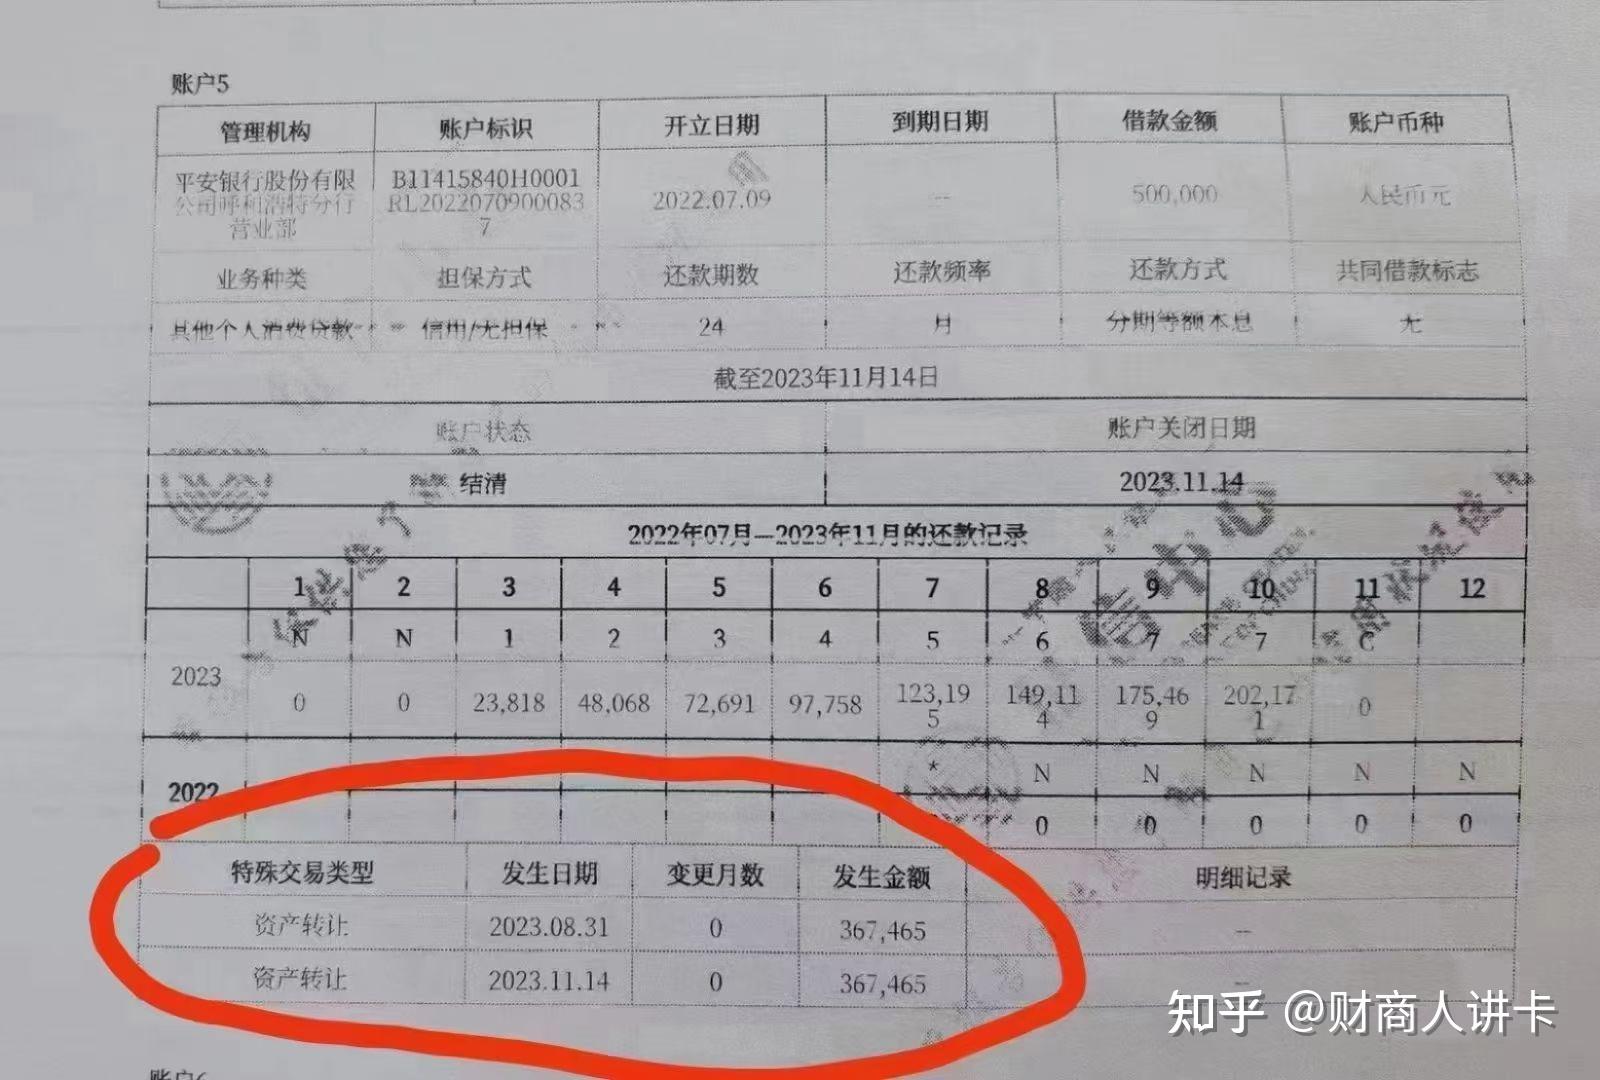 账户5
管理机构 账户标识 开立日期 到期日期 借款金额 账户币种
平安银行股份有限 B11415840H0001
公司呼和浩特分行 RL202207090083 2022.07.09 -- 500,000 人民币元
营业部 7
业务种类 担保方式 还款期数 还款频率 还款方式 共同借款标志
其他个人消费贷款 信用/无担保 24 月 分期等额本息 无
截至2023年11月14日
账户状态 账户关闭日期
结清 2023.11.14
2022年07月—2023年11月的还款记录
1 2 3 4 5 6 7 8 9 10 11 12
N N 1 2 3 4 5 6 7 7 C
2023
0 0 23,818 48,068 72,691 97,758 123,195 149,114 175,469 202,171 0
* N N N N N
2022
0 0 0 0 0
特殊交易类型 发生日期 变更月数 发生金额 明细记录
资产转让 2023.08.31 0 367,465 --
资产转让 2023.11.14 0 367,465 --
知乎 @财商人讲卡